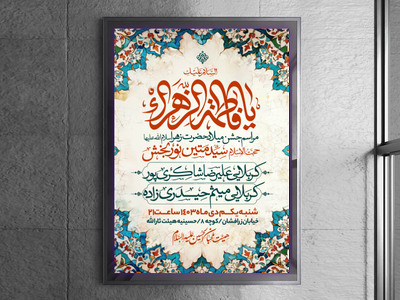 السلام علیک
یا فاطمة الزهراء
مراسم جشن میلاد حضرت زهرا سلام الله علیها
حجت الاسلام سید متین نوربخش
کربلایی علیرضا شاکری پور
کربلایی میثم حیدری زاده
شنبه یکم دی ماه ۱۴۰۳ ساعت ۲۱
خیابان زرافشان/کوچه ۸/حسینیه هیئت ثارالله